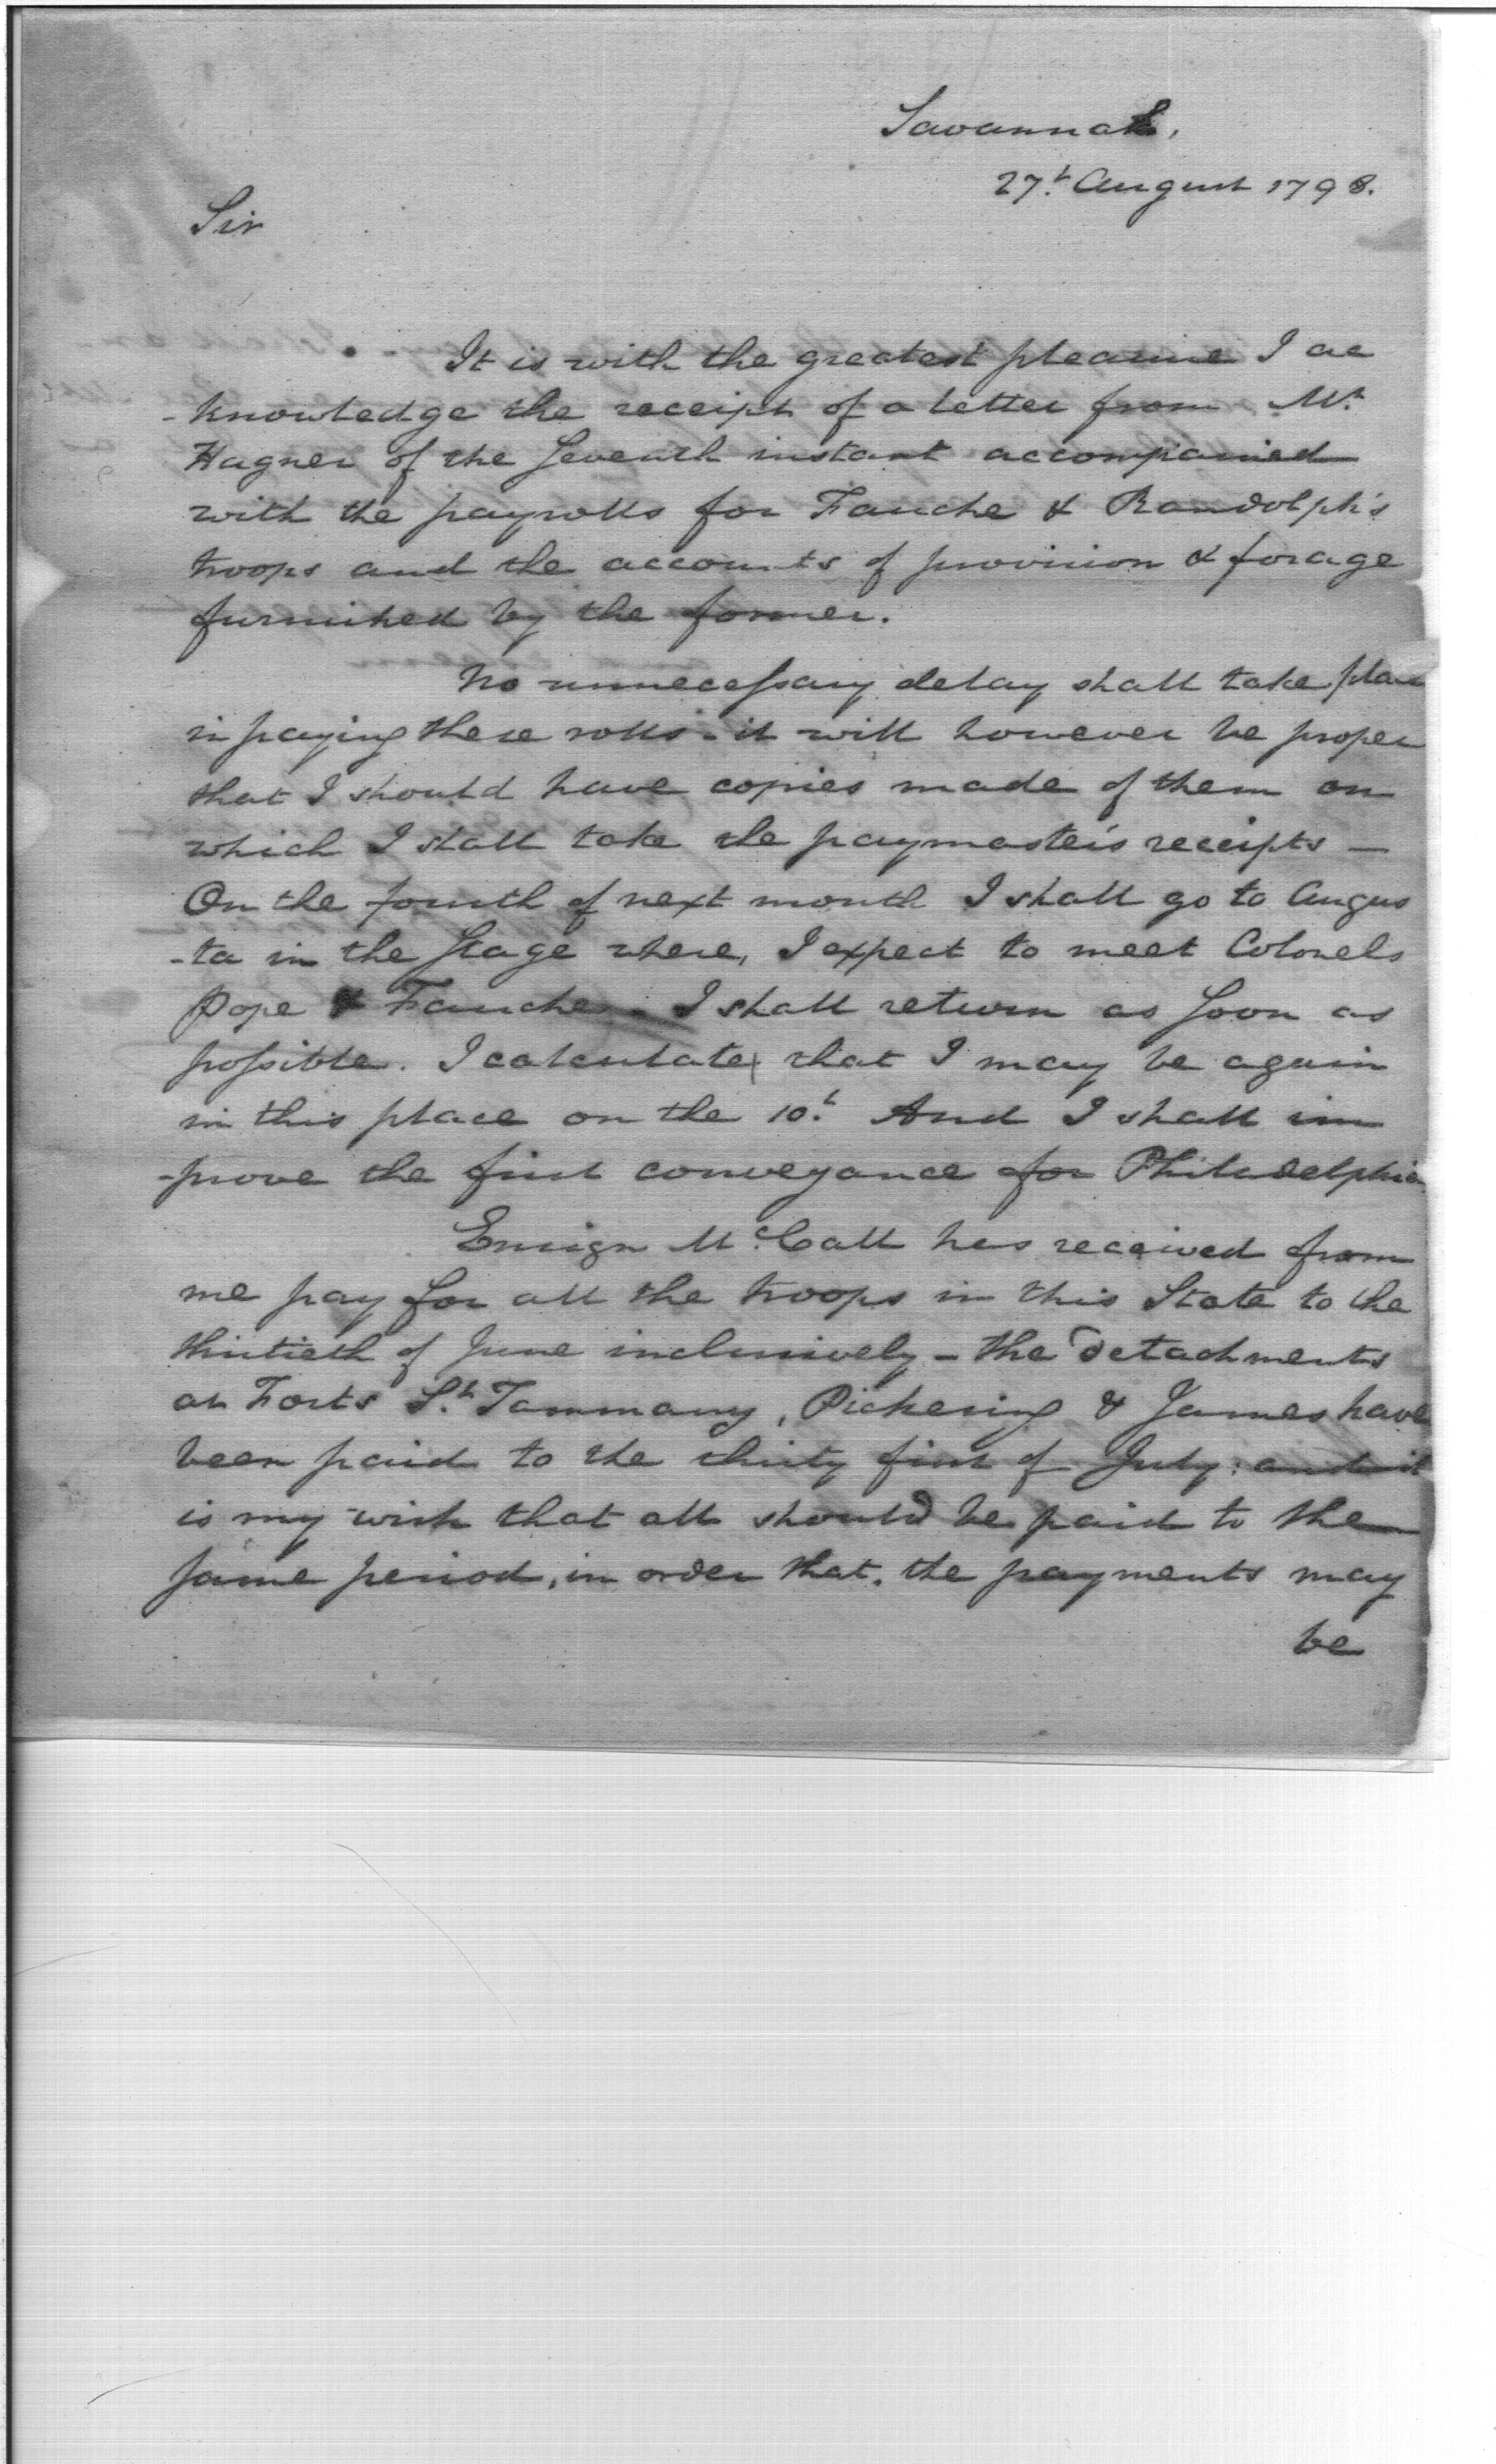 Savannah,
27th August 1798.
Sir
It is with the greatest pleasure I ac
-knowledge the receipt of a letter from Mr.
Hagner of the Seventh instant accompanied
with the payrolls for Fauche & Randolph's
troops and the accounts of provision & forage
furnished by the former.
No unnecessary delay shall take place
in paying these rolls - it will however be proper
that I should have copies made of them on
which I shall take the paymaster's receipts —
On the fourth of next month I shall go to Augus
-ta in the Stage where, I expect to meet Colonels
Pope & Fauche. I shall return as soon as
possible. I calculate that I may be again
in this place on the 10th. And I shall im
-prove the first conveyance for Philadelphia
Ensign McCall has received from
me pay for all the troops in this State to the
thirtieth of June inclusively - the detachments
at Forts St. Tammany, Pickering & James have
been paid to the thirty first of July: and it
is my wish that all should be paid to the
same period, in order that, the payments may
be